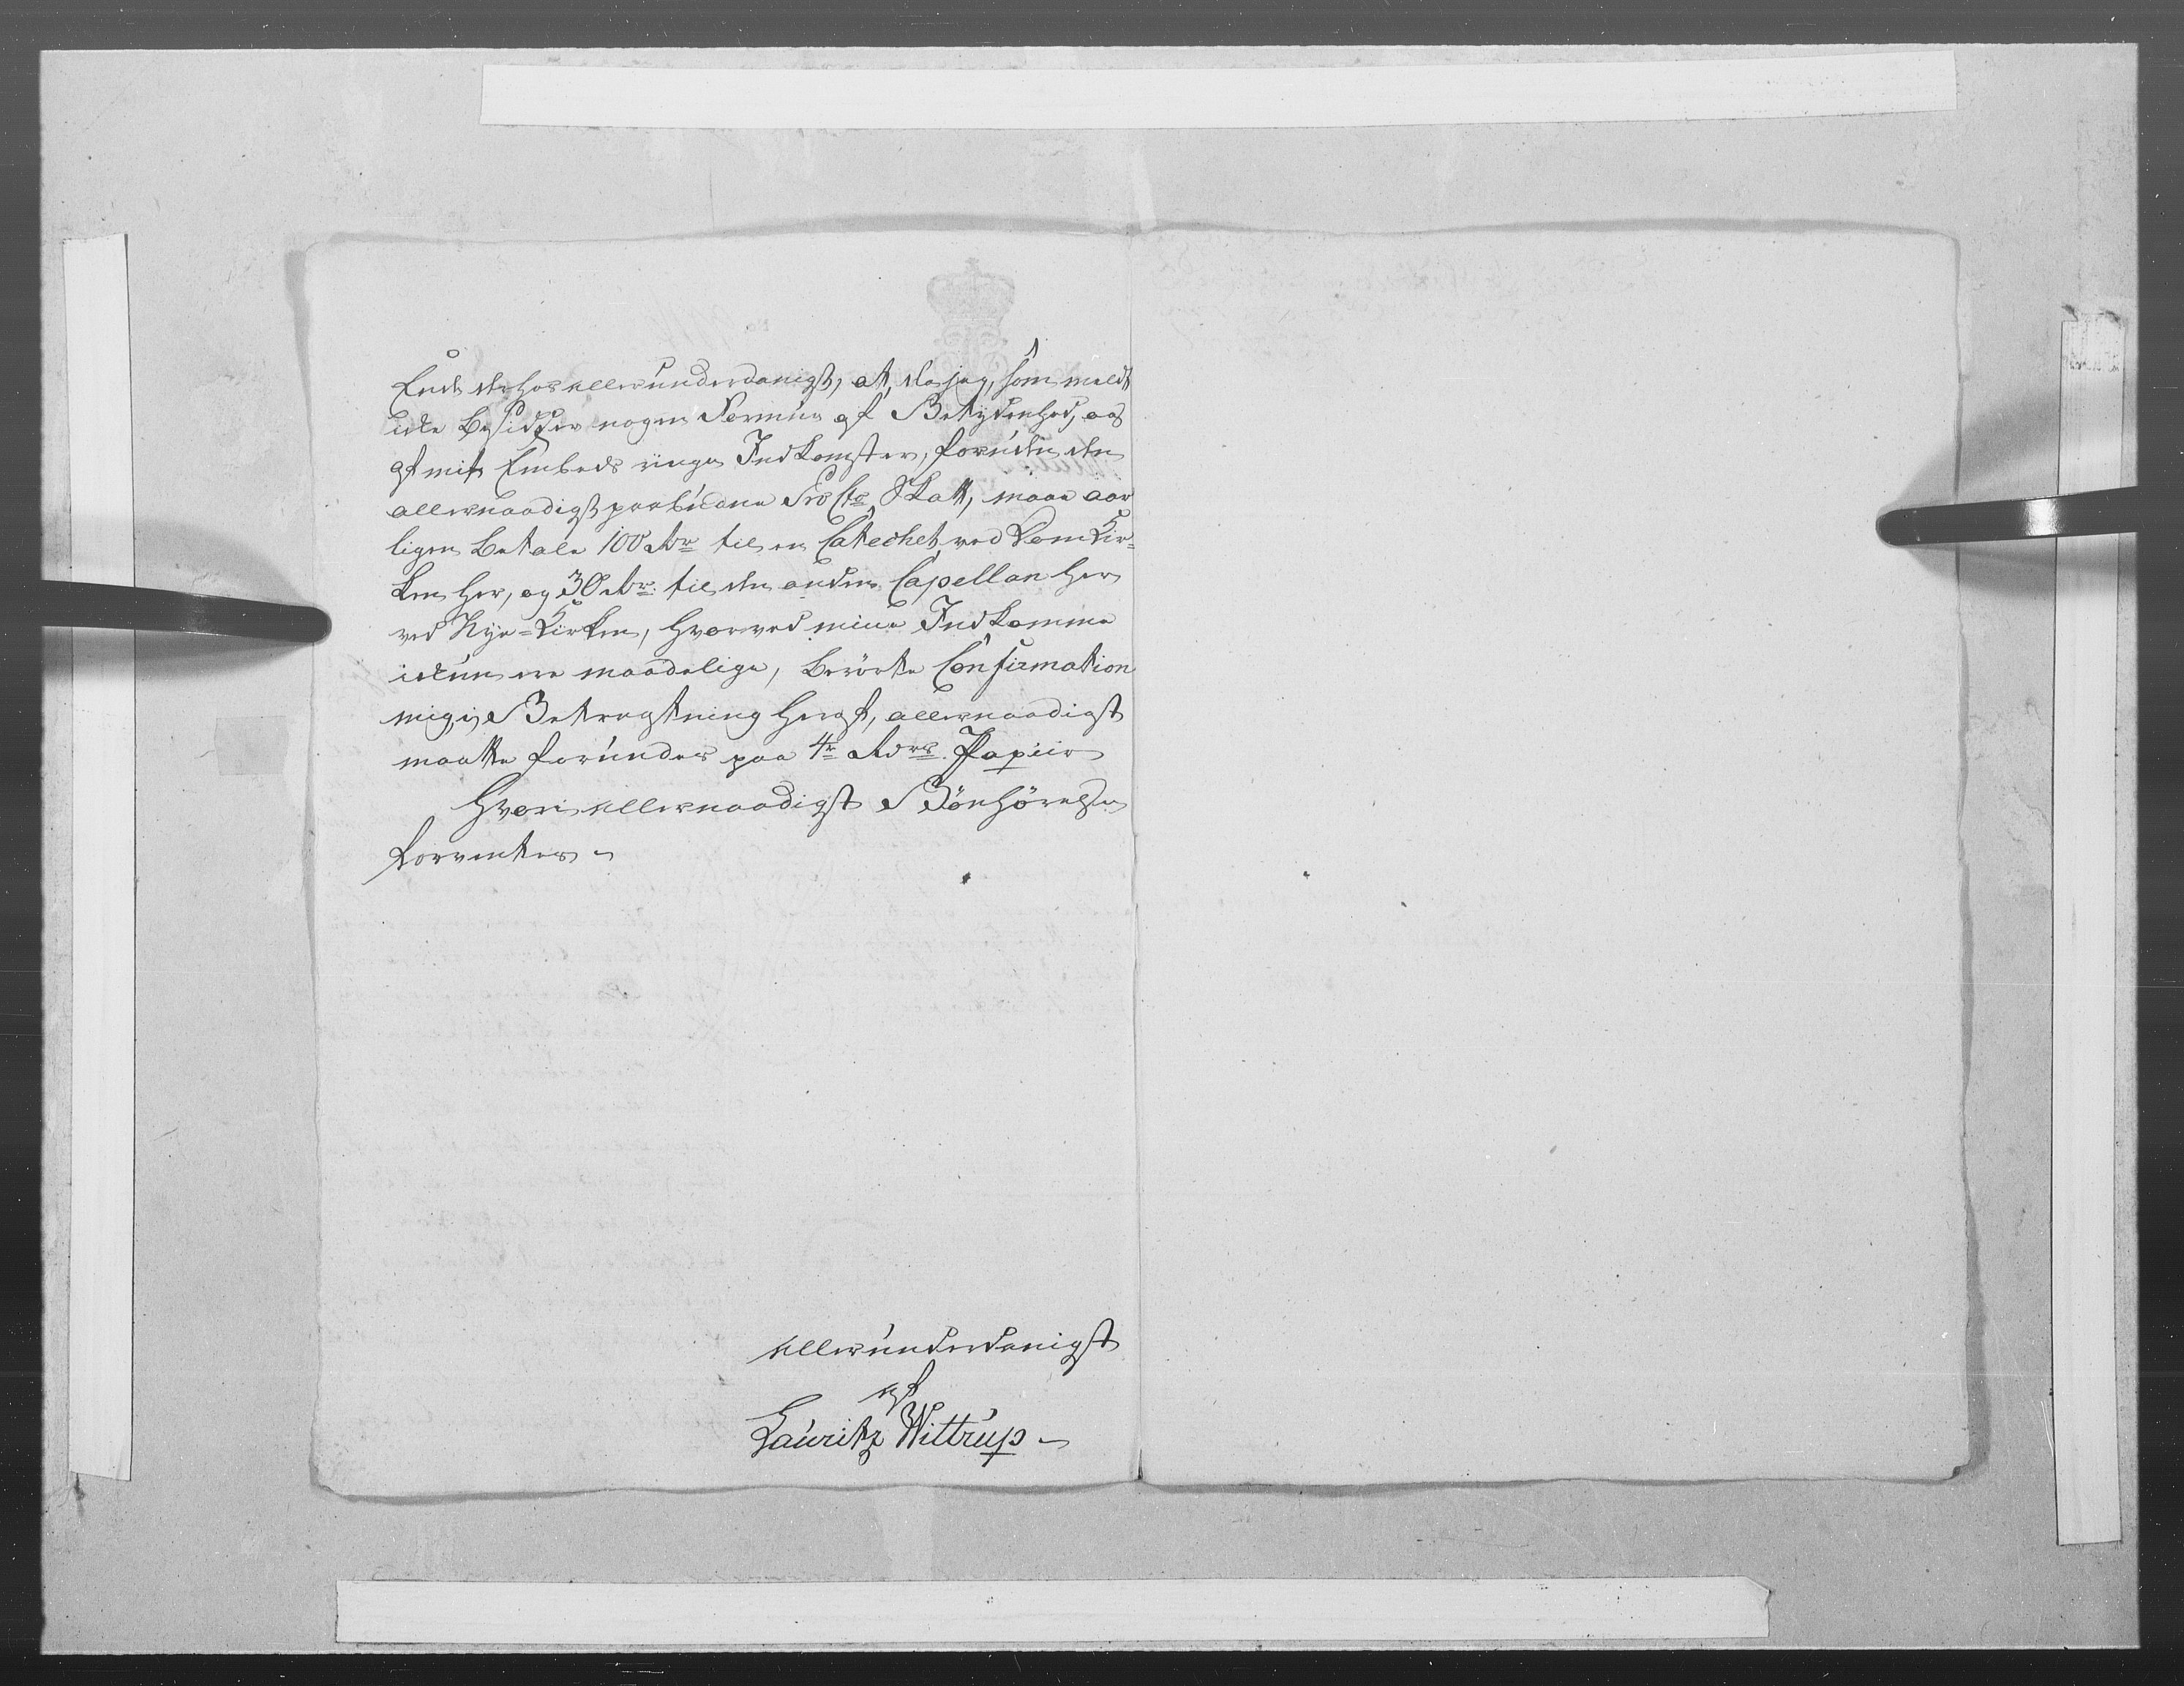 derhos allerunderdanigst, at, da jeg, som meldt
icke besidder nogen Formue af Betydenhed, og
af mit Embeds ringe Indkomster, foruden den
allernaadigst paabudne Pro Cto Skatt, maae aar
ligen betale 100 Rdr til en Catechet ved Domkir-
ken her, og 30 Rdr: til den anden Capellan her
ved Nye-Kirken, hvorved mine Indkomme
ickun ere maadelige, berörte Confirmation
mig, i Betragtning heraf, allernaadigst
maatte forundes paa 4re Rdrs Papiir
Hvori allernaadigst Bönhörelse
forventes
allerunderdanigst
af
Lauritz Wittrup